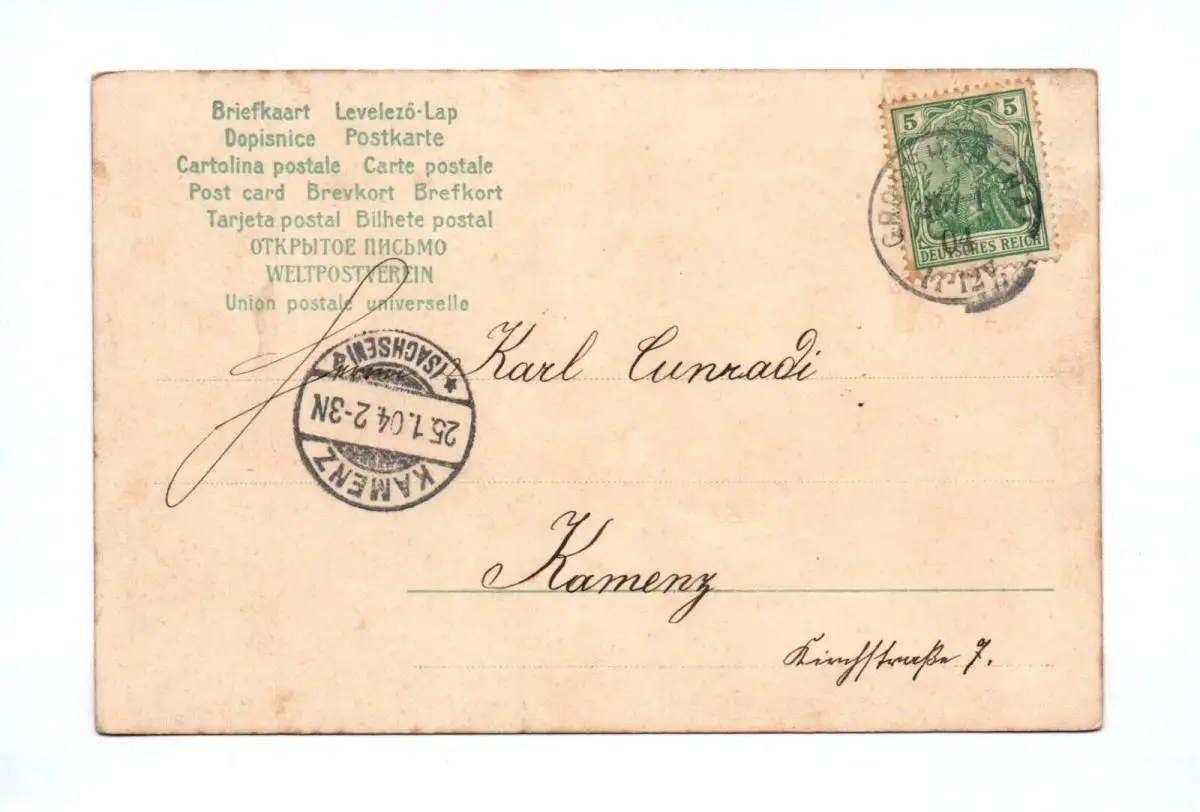 Briefkaart Levelező-Lap
Dopisnice Postkarte
Cartolina postale Carte postale
Post card Brevkort Brefkort
Tarjeta postal Bilhete postal
ОТКРЫТОЕ ПИСЬМО
WELTPOSTVEREIN
Union postale universelle
5 5
DEUTSCHES REICH
04
11-12V
Herrn Karl Cunradi
KAMENZ
25.1.04 2-3N
* (SACHSEN)
Kamenz
Kirchstraße 7.